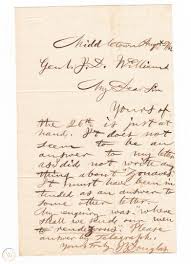 Middletown Aug
Genl. J. D. Williams
My Dear Sir
Yours of
the 26th is just at
hand. It does not
seem to be an
answer to my letter
as I did not write any
thing about Zouaves.
It must have been in
tended as an answer to
some other letter.
My enquiry was where
shall we send our men
to rendezvous. Please
answer by telegraph.
Yours truly